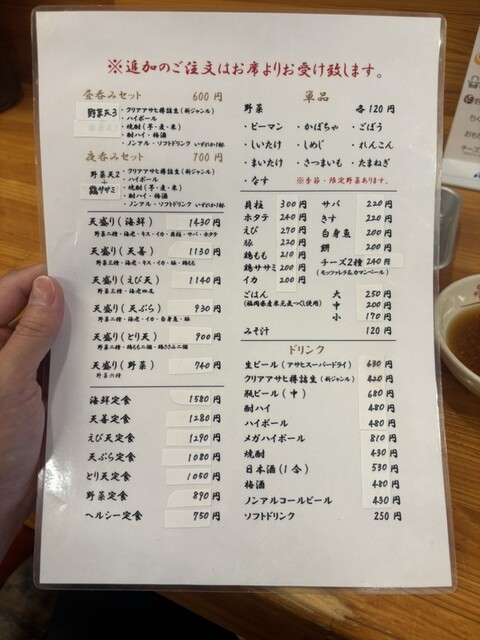 ※追加のご注文はお席よりお受け致します。
昼呑みセット 600円
野菜天3
・クリアアサヒ樽詰生(新ジャンル)
・ハイボール
・焼酎(芋・麦・米)
・酎ハイ・梅酒
・ノンアル・ソフトドリンク いずれか1杯
夜呑みセット 700円
野菜天2
+
鶏ササミ
・クリアアサヒ樽詰生(新ジャンル)
・ハイボール
・焼酎(芋・麦・米)
・酎ハイ・梅酒
・ノンアル・ソフトドリンク いずれか1杯
天盛り(海鮮) 1430円
野菜二種・海老・キス・イカ・貝柱・サバ・ホタテ
天盛り(天善) 1130円
野菜三種・海老・キス・イカ・豚・鶏もも
天盛り(えび天) 1140円
野菜三種・海老四尾
天盛り(天ぷら) 930円
野菜二種・海老・イカ・白身魚・豚
天盛り(とり天) 900円
野菜二種・鶏もも二個・鶏ささみ二個
天盛り(野菜) 740円
野菜六種
海鮮定食 1580円
天善定食 1280円
えび天定食 1290円
天ぷら定食 1080円
とり天定食 1050円
野菜定食 890円
ヘルシー定食 750円
単品
野菜 各120円
・ピーマン ・かぼちゃ ・ごぼう
・しいたけ ・しめじ ・れんこん
・まいたけ ・さつまいも ・たまねぎ
・なす ※季節・限定野菜あります。
貝柱 300円
ホタテ 240円
えび 270円
豚 220円
鶏もも 210円
鶏ササミ 200円
イカ 200円
サバ 220円
きす 220円
白身魚 200円
餅 200円
チーズ2種 240円
(モッツァレラ&カマンベール)
ごはん 大 250円
(福岡県産米元気つくし使用) 中 200円
小 170円
みそ汁 120円
ドリンク
生ビール(アサヒスーパードライ) 630円
クリアアサヒ樽詰生(新ジャンル) 420円
瓶ビール(中) 680円
酎ハイ 480円
ハイボール 480円
メガハイボール 810円
焼酎 430円
日本酒(1合) 530円
梅酒 480円
ノンアルコールビール 430円
ソフトドリンク 250円